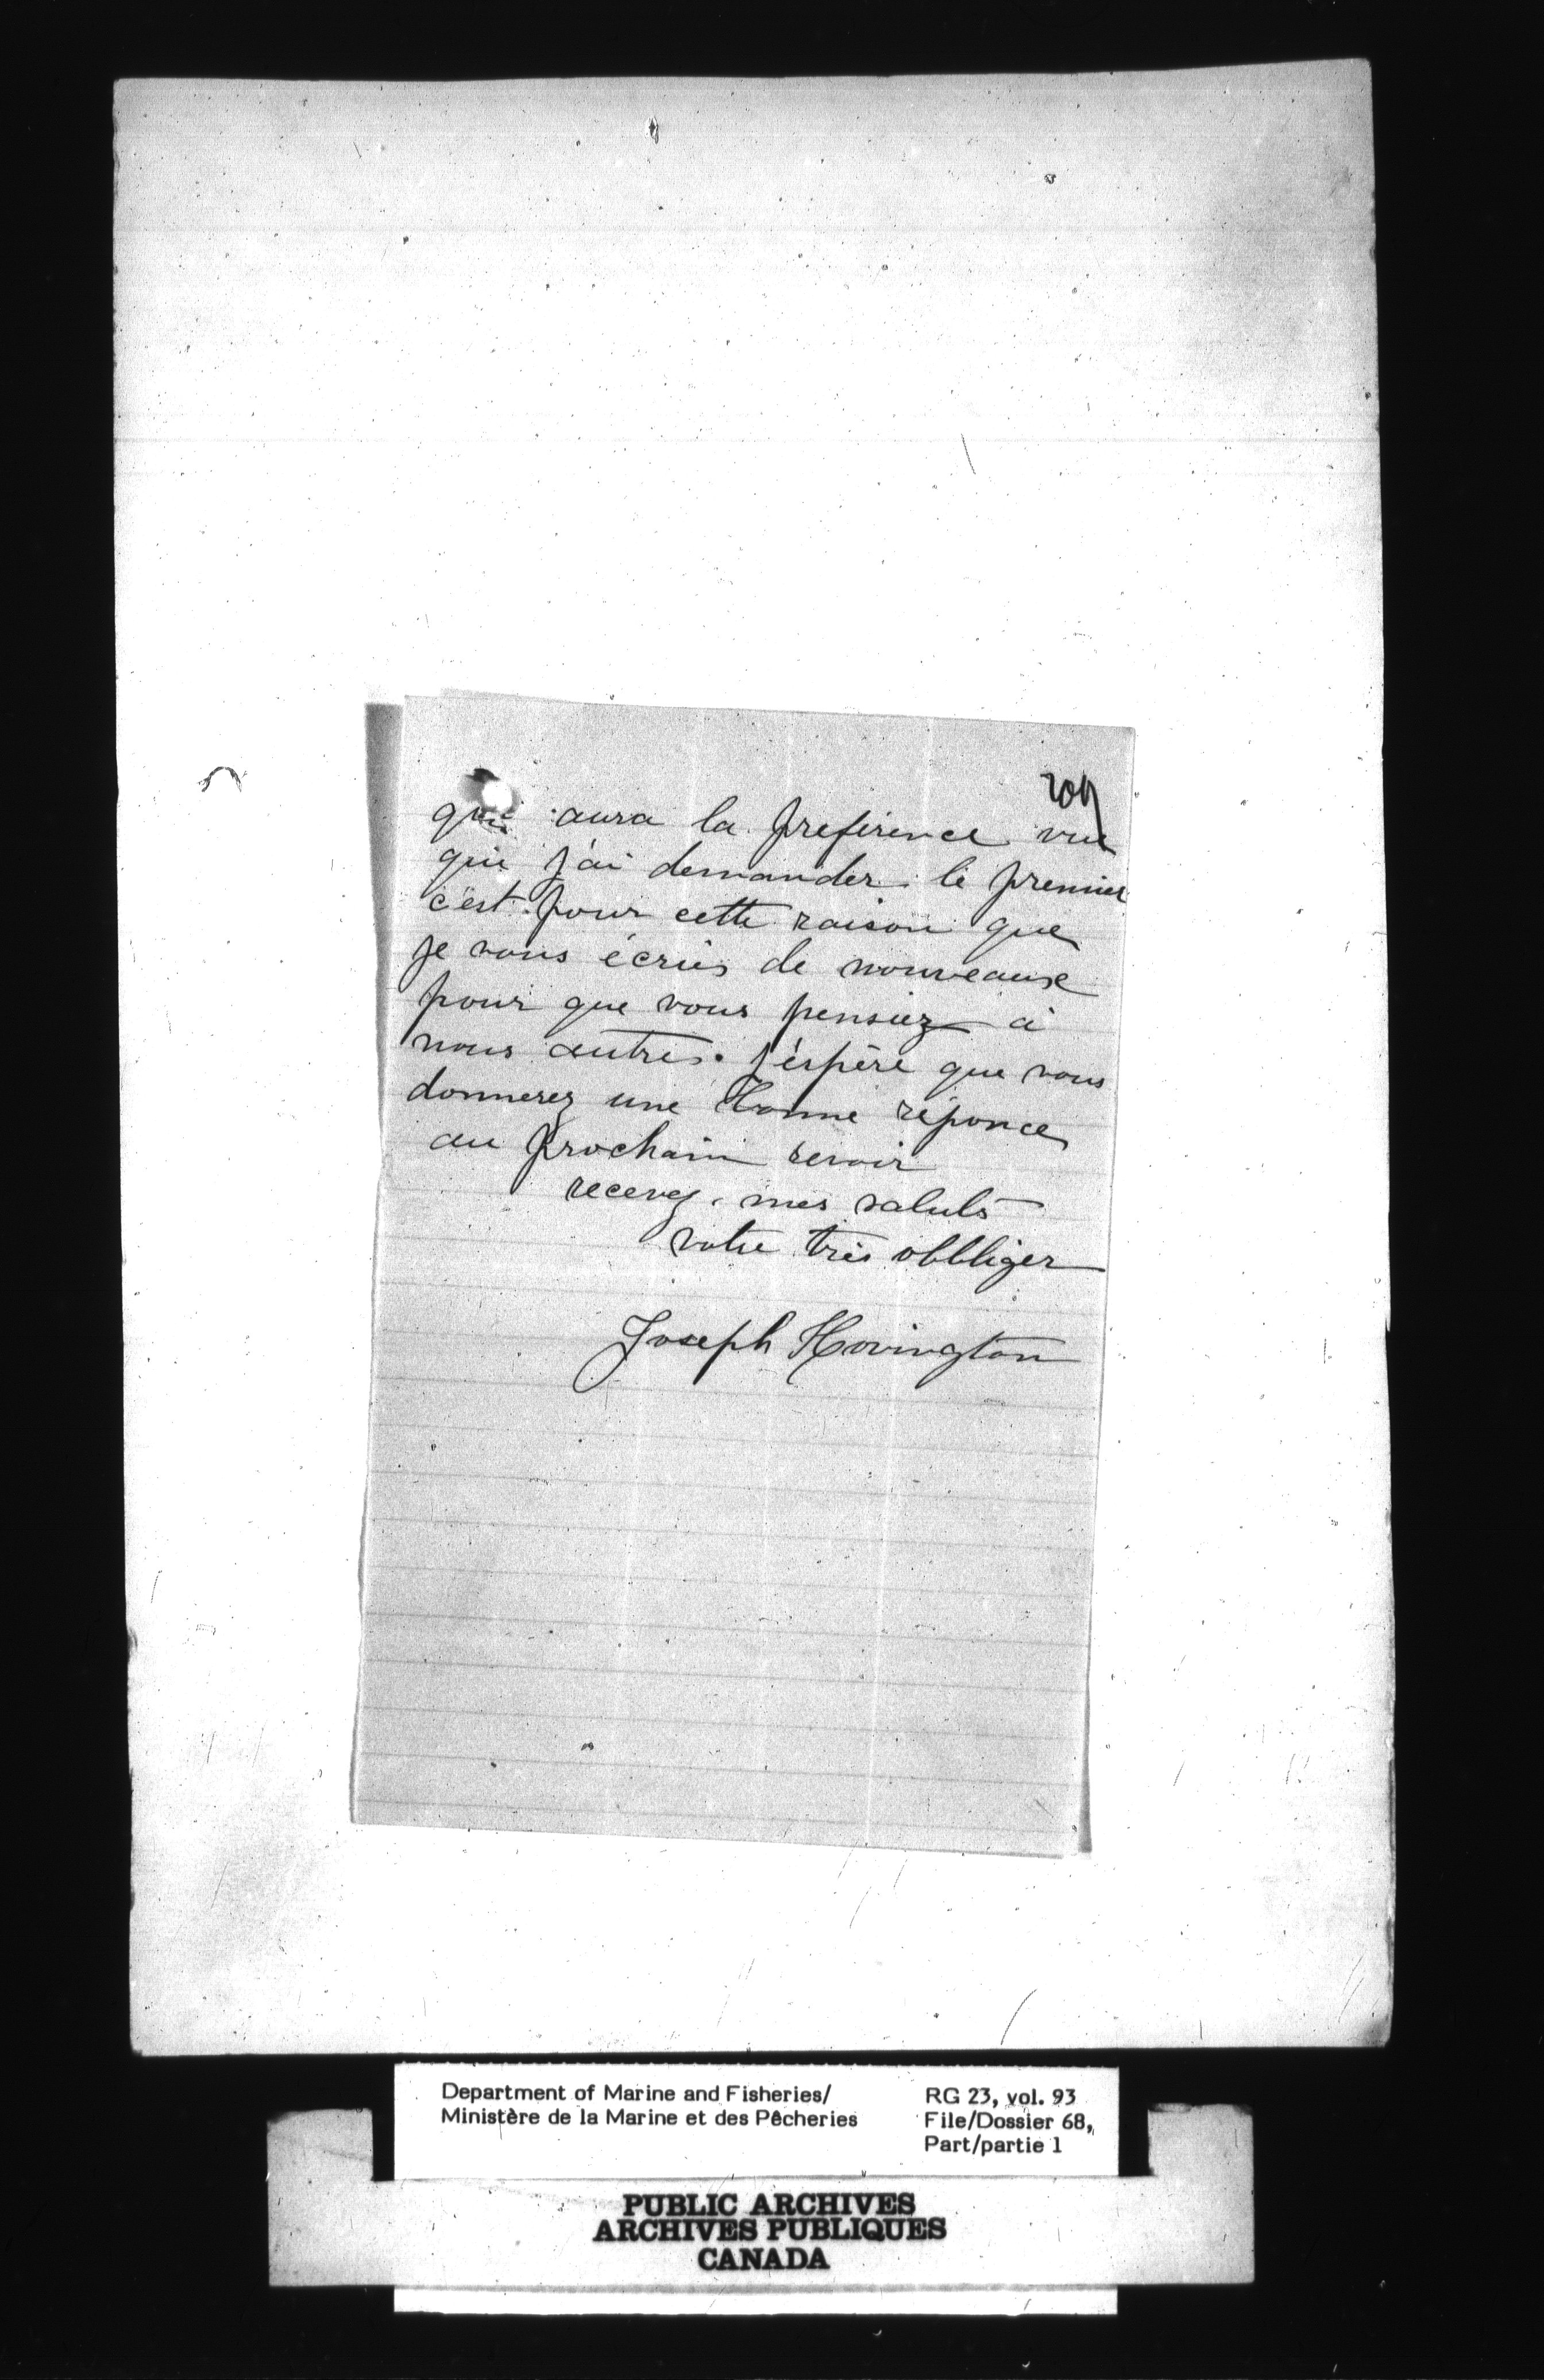 209
qui aura la preference vue
que j'ai demander le premier
c'est pour cette raison que
je vous écries de nouveaux
pour que vous pensiez à
nous autres. j'éspère que vous
donnerez une bonne réponce
au prochain revoir
recevez mes saluts
votre très obbliger
Joseph Hovington
Department of Marine and Fisheries/
Ministère de la Marine et des Pêcheries
RG 23, vol. 93
File/Dossier 68,
Part/partie 1
PUBLIC ARCHIVES
ARCHIVES PUBLIQUES
CANADA